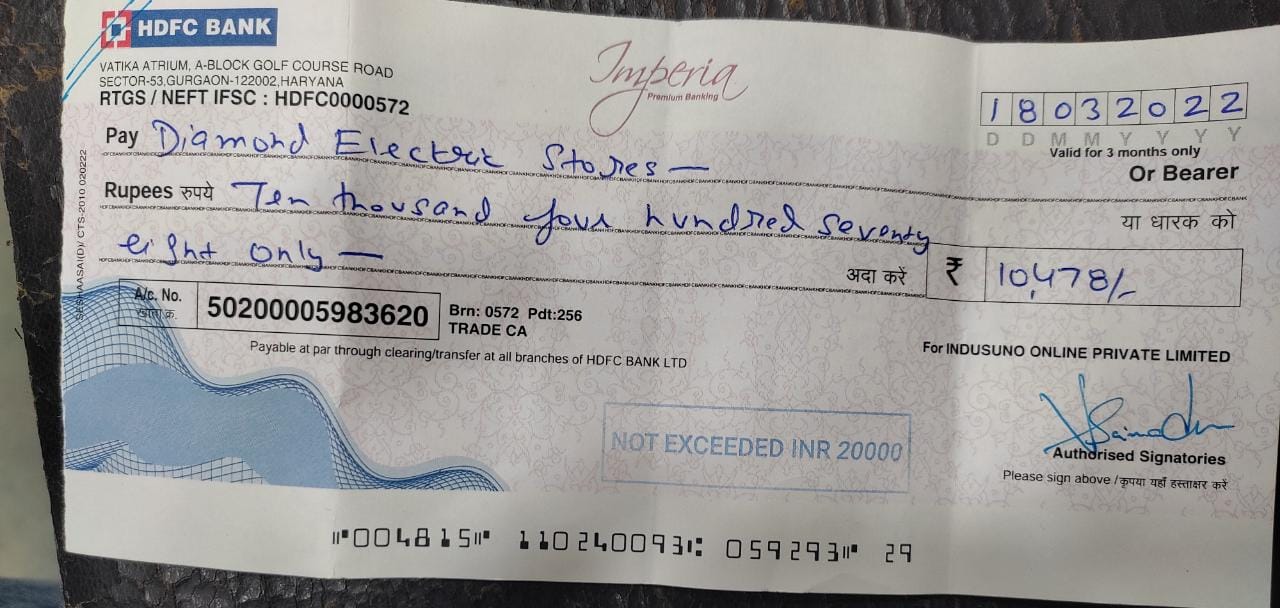 HDFC BANK
VATIKA ATRIUM, A-BLOCK GOLF COURSE ROAD
SECTOR-53,GURGAON-122002,HARYANA
RTGS / NEFT IFSC : HDFC0000572
Imperia
Premium Banking
18032022
D D M M Y Y Y Y
Valid for 3 months only
Pay Diamond Electric Stores —
Or Bearer
Rupees रुपये Ten thousand four hundred seventy
या धारक को
eight only —
अदा करें ₹ 10,478/-
A/c. No.
खाता क्र.
50200005983620
Brn: 0572 Pdt:256
TRADE CA
Payable at par through clearing/transfer at all branches of HDFC BANK LTD
For INDUSUNO ONLINE PRIVATE LIMITED
NOT EXCEEDED INR 20000
Authorised Signatories
Please sign above / कृपया यहाँ हस्ताक्षर करें
⑈004815⑈ 110240093⑆ 059293⑈ 29
CTS-2010 020222